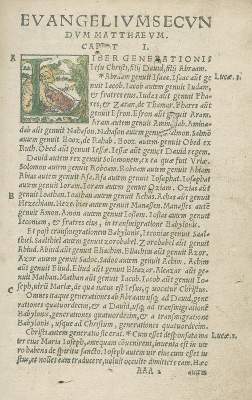 EVANGELIUM SECVN
DVM MATTHAEVM.
CAPVT I.
A LIBER GENERATIONIS
Iesu Christi, filij Dauid, filij Abraam.
* Abraam genuit Isaac. Isaac aũt ge Lucæ.3.
nuit Iacob. Iacob autem genuit Iudam,
& fratres eius. Iudas aũt genuit Pha-
res, & Zaram, de Thamar. Phares aũt
genuit Esrom. Esrom aũt genuit Aram.
Aram autem genuit Amin adab. Aminad-
dab aũt genuit Naasson. Naasson autem genuit Salmon. Salmõ
autem genuit Booz, de Rahab. Booz autem genuit Obed de
Ruth. Obed aũt genuit Iesse. Iesse aũt genuit Dauid regem.
Dauid autem rex genuit Solomonem, ex ea quæ fuit Vriæ.
Solomon autem genuit Roboam. Roboam autem genuit Abiam.
Abias autem genuit Asa. Asa aũt genuit Iosaphat. Iosaphat
autem genuit Ioram. Ioram autem genuit Oziam. Ozias aũt
B genuit Ioatham. Ioatham autem genuit Achas. Achas aũt genuit
Hezechiam. Hezechias autem genuit Manassen. Manasses aũt
genuit Amon. Amon autem genuit Iosiam. Iosias autem genuit
Ieconiam, & fratres eius, in transmigratione Babylonis.
Et post transmigrationem Babylonis, Ieconias genuit Saal-
thiel. Saalthiel autem genuit Zorobabel. Zorobabel aũt genuit
Abiud. Abiud aũt genuit Eliachim. Eliachim aũt genuit Azor.
Azor autem genuit Sadoc. Sadoc autem genuit Achin. Achim
aũt genuit Eliud. Eliud aũt genuit Eleazar. Eleazar aũt ge-
nuit Mathan. Mathan aũt genuit Iacob. Iacob aũt genuit Io-
seph, virũ Mariæ, de qua natus est Iesus, q̃ vocatur Christus.
C Omnes itaque generationes ab Abraam usq; ad Dauid, gene
rationes quatuordecim, & a Dauid, usq; ad transmigrationẽ
Babylonis, generationes quatuordecim, & a transmigratione
Babylonis, usque ad Christum, generationes quatuordecim.
Christi autem generatio sic erat. * Cum esset desponsata ma Lucæ.1.
ter eius Maria Ioseph, antequam cõuenirent, inuenta est in ute
ro habens de spiritu sancto. Ioseph autem vir eius cum esset iu
stus, et nollet eam traducere, uoluit occulte dimittere eam. Hæc
AAA 2 autem